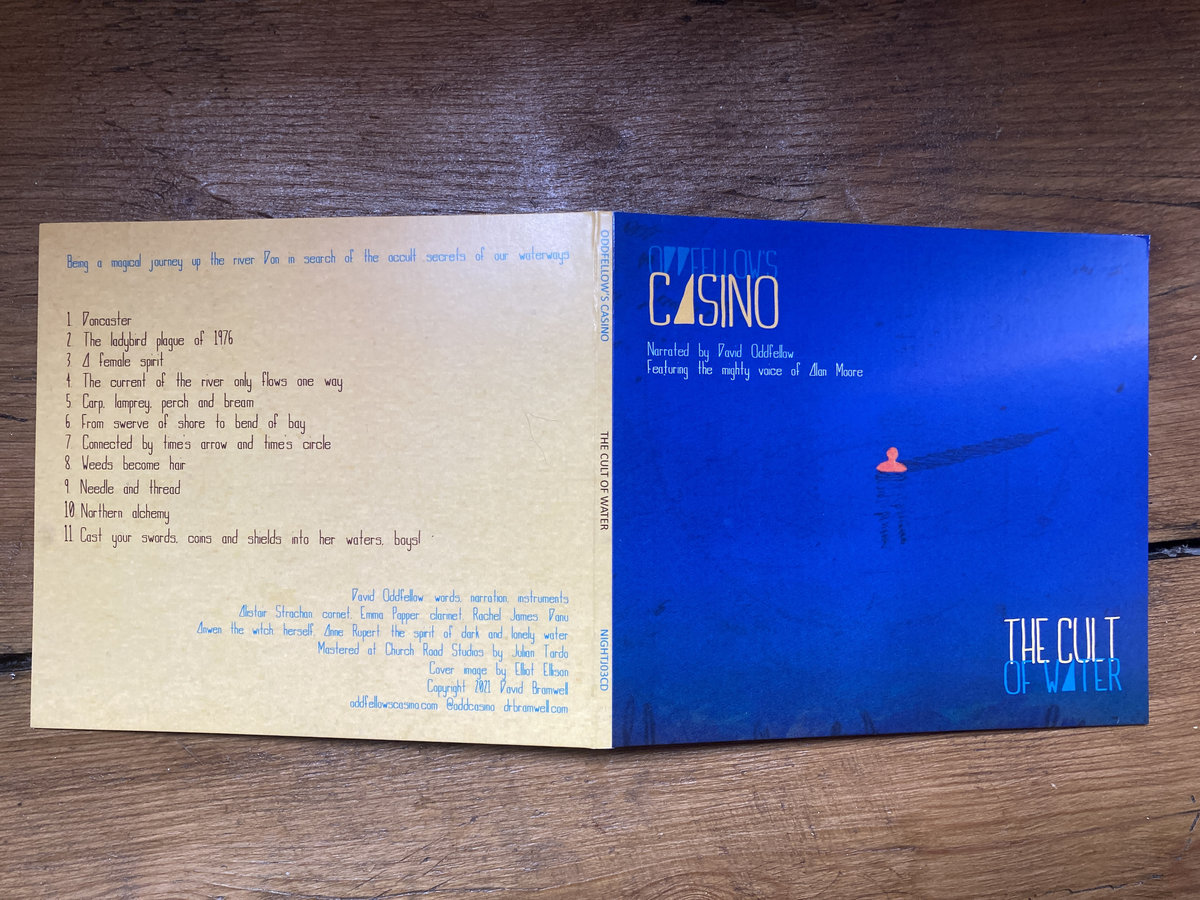 Being a magical journey up the river Don in search of the occult secrets of our waterways
1 Doncaster
2 The ladybird plague of 1976
3 A female spirit
4 The current of the river only flows one way
5 Carp, lamprey, perch and bream
6 From swerve of shore to bend of bay
7 Connected by time's arrow and time's circle
8 Weeds become hair
9 Needle and thread
10 Northern alchemy
11 Cast your swords, coins and shields into her waters, boys!
David Oddfellow words, narration, instruments
Alistair Strachan cornet, Emma Papper clarinet, Rachel James Danu
Anwen the witch herself, Anne Rupert the spirit of dark and lonely water
Mastered at Church Road Studios by Julian Tardo
Cover image by Elliot Ellison
Copyright 2021 David Bramwell
oddfellowscasino.com @oddcasino drbramwell.com
ODDFELLOW'S CASINO
THE CULT OF WATER
NIGHTJ03CD
ODDFELLOW'S
CASINO
Narrated by David Oddfellow
Featuring the mighty voice of Alan Moore
THE CULT
OF WATER